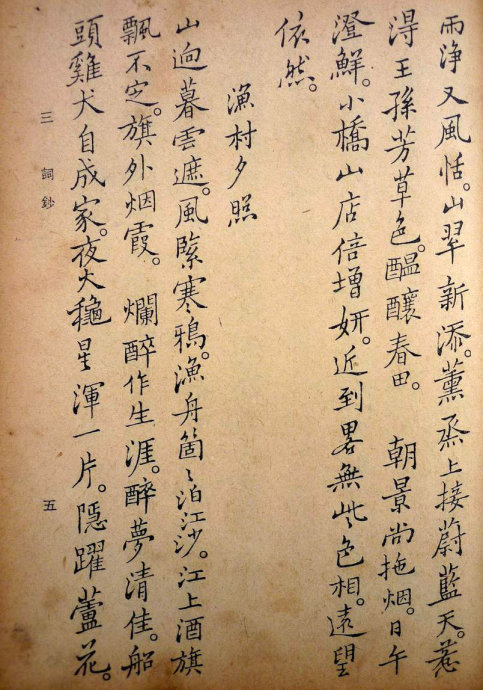 雨淨又風恬。山翠新添。薰烝上接蔚藍天。惹
淂王孫芳草色。醞釀春田。　朝景尚拖烟。日午
澄鮮。小橋山店倍增妍。近到畧無此色相。遠望
依然。
漁村夕照
山逈暮雲遮。風緊寒鴉。漁舟箇〻泊江沙。江上酒旗
飄不定。旗外烟霞。　爛醉作生涯。醉夢清佳。船
頭雞犬自成家。夜火龝星渾一片。隱躍蘆花。
三　詞鈔　五